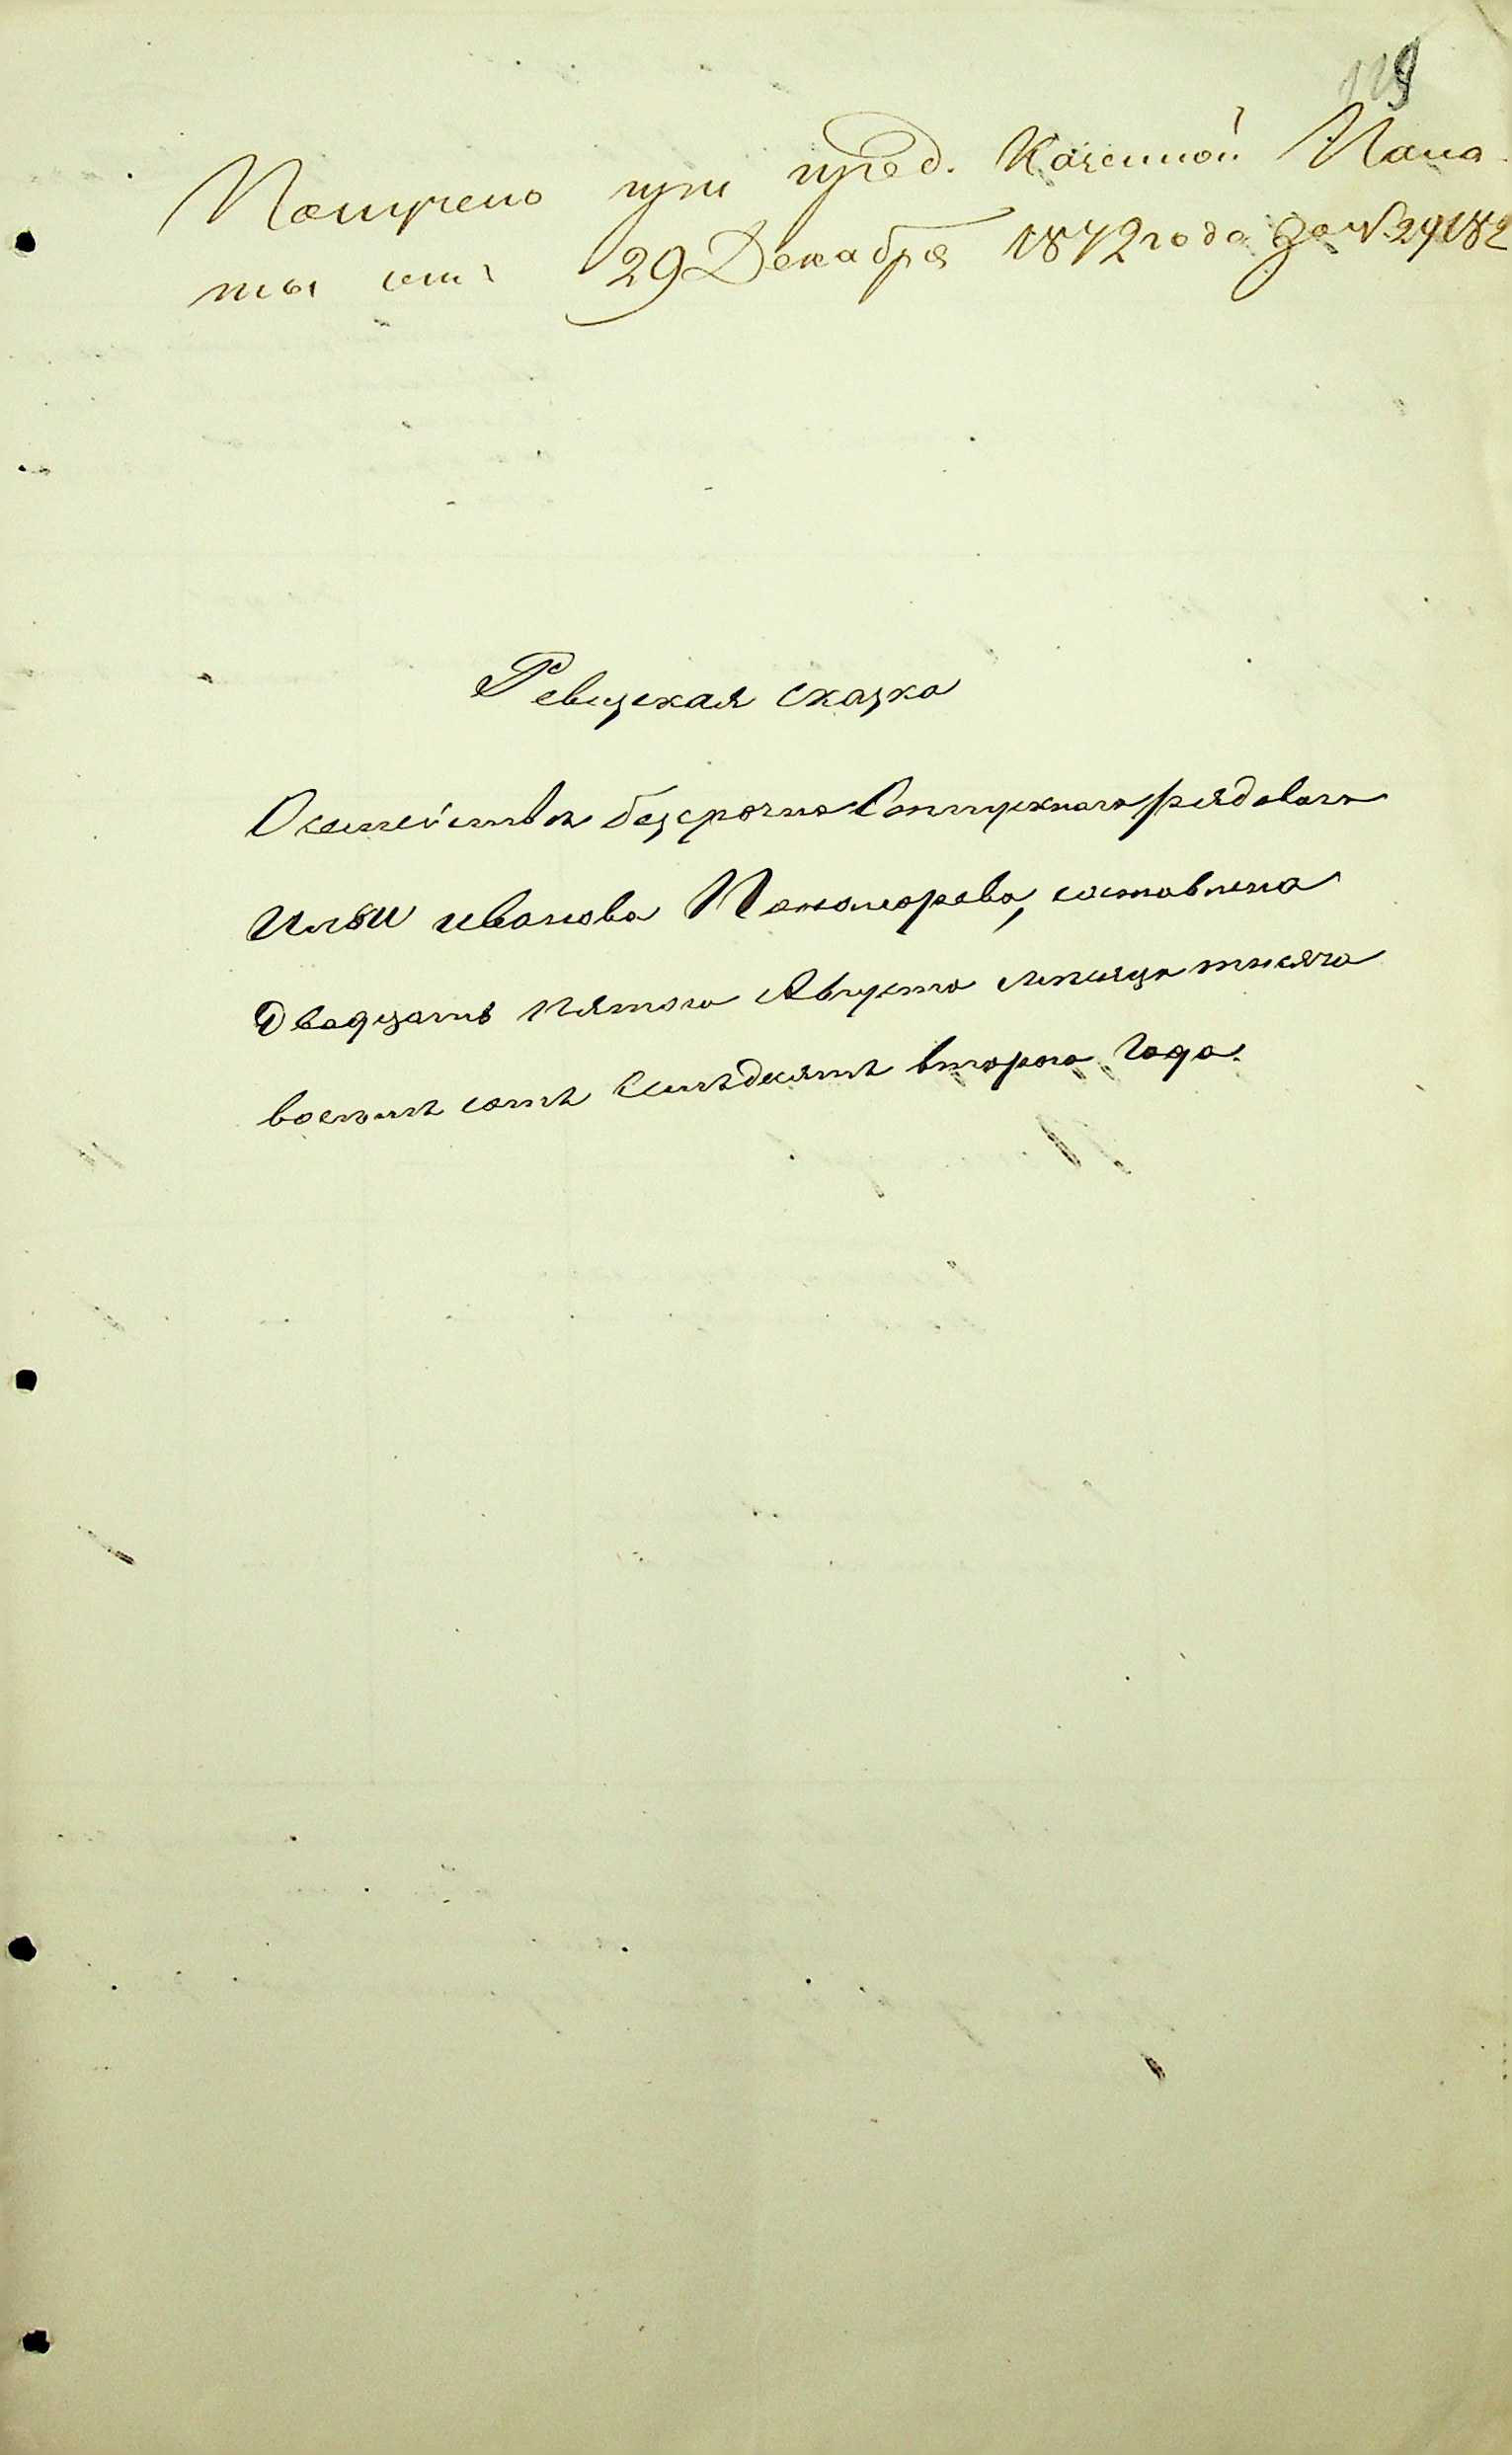 129
Получено при пред. Казенной Пала-
ты отъ 29 Декабря 1872 года за №
Ревизская сказка
О семействѣ безсрочно отпускнаго рядоваго
Ильи Иванова Пономорева, составлена
Двадцать пятого Августа мѣсяца тысяча
восемь сотъ семьдесятъ второго года.